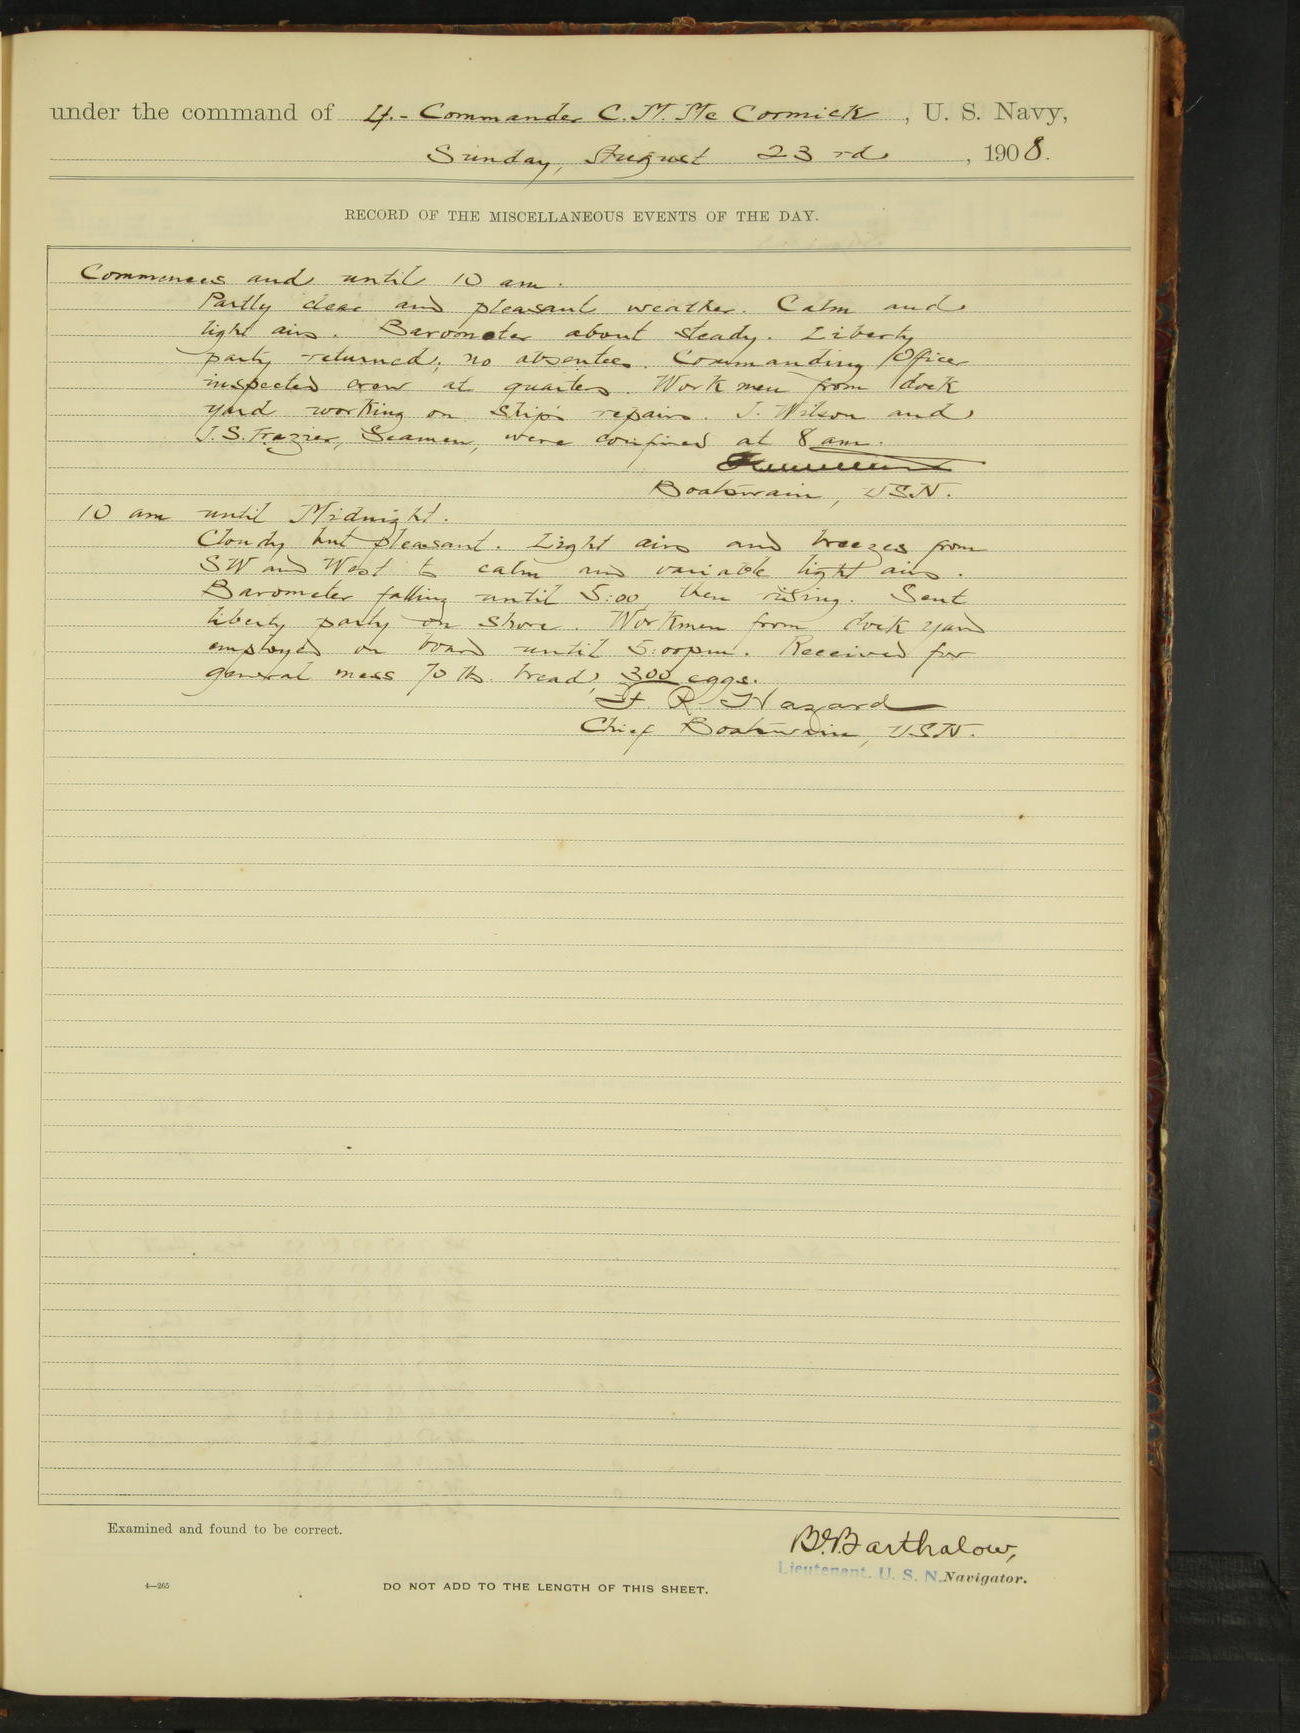 under the command of Lt.- Commander C. M. Mc Cormick, U. S. Navy,
Sunday, August 23rd, 1908.
RECORD OF THE MISCELLANEOUS EVENTS OF THE DAY.
Commences and until 10 am.
Partly clear and pleasant weather. Calm and
light airs. Barometer about steady. Liberty
party returned; no absentees. Commanding Officer
inspected crew at quarters. Workmen from dock
yard working on ship's repairs. J. Wilson and
J. S. Frazier, Seamen, were confined at 8 am.
Boatswain, USN.
10 am until Midnight.
Cloudy but pleasant. Light airs and breezes from
SW and West to calm and variable light airs.
Barometer falling until 5:00, then rising. Sent
liberty party on shore. Workmen from dock yard
employed on board until 5:00 pm. Received for
general mess 70 lb. bread, 300 eggs.
Hazard
Chief Boatswain, USN.
Examined and found to be correct.
Barthalow,
Lieutenant. U. S. N. Navigator.
4—265
DO NOT ADD TO THE LENGTH OF THIS SHEET.